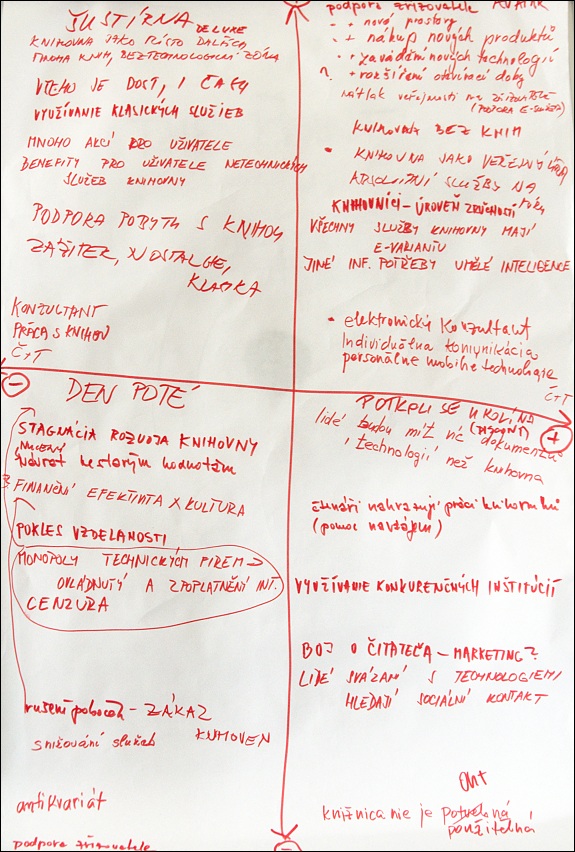 ŠUSTÍRNA DE LUXE
KNIHOVNA JAKO MÍSTO DALŠÍCH
MNOHA KNIH, BEZTECHNOLOGICKÁ ZÓNA
VŠEHO JE DOST, I ČASU
VYUŽÍVANIE KLASICKÝCH SLUŽIEB
MNOHO AKCÍ PRO UŽIVATELE
BENEFITY PRO UŽIVATELE NETECHNICKÝCH
SLUŽEB KNIHOVNY
PODPORA POBYTU S KNIHOU
ZÁŽITEK, NOSTALGIE,
KLASIKA
KONZULTANT
PRÁCA S KNIHOU
ČxT
podpora zřizovatele AVATAR
+ nové prostory
+ nákup nových produktů
+ zavádění nových technologií
? + rozšíření otevírací doby
nátlak veřejnosti na zřizovatele
(PODPORA E-SLUŽEB)
KNIHOVNA BEZ KNIH
• KNIHOVNA JAKO VEŘEJNÝ
ABSOLUTNÍ SLUŽBY NA
KNIHOVNÍCI - ÚROVEŇ ZRUČNOSTÍ
VŠECHNY SLUŽBY KNIHOVNY MAJÍ
E-VARIANTU
JINÉ INF. POTŘEBY UMĚLÉ INTELIGENCE
• elektronický konzultant
Individuálna komunikácia
personálne mobilne technologie
ČxT
−
DEN POTÉ
STAGNÁCIA ROZVOJA KNIHOVNY
NUCENÝ
návrat ke starým hodnotám
? FINANČNÍ EFEKTIVITA X KULTURA
POKLES VZDELANOSTI
MONOPOLY TECHNICKÝCH FIREM →
OVLÁDNUTÝ A ZPOPLATNĚNÝ INT.
CENZURA
rušení poboček - ZÁKAZ
KNIHOVEN
snižování služeb
antikvariát
podpora zřizovatele
POTKALI SE U KOLÍNA
lidé budou mít víc dokumentů
+
i technologií než knihovna
čtenáři nahrazují práci knihovníků
(pomoc navzájem)
VYUŽÍVANIE KONKURENČNÝCH INŠTITÚCIÍ
BOJ O ČITATEĽA - MARKETING?
LIDÉ SVÁZANÍ S TECHNOLOGIEMI
HLEDAJÍ SOCIÁLNÍ KONTAKT
knižnica nie je
použitelná